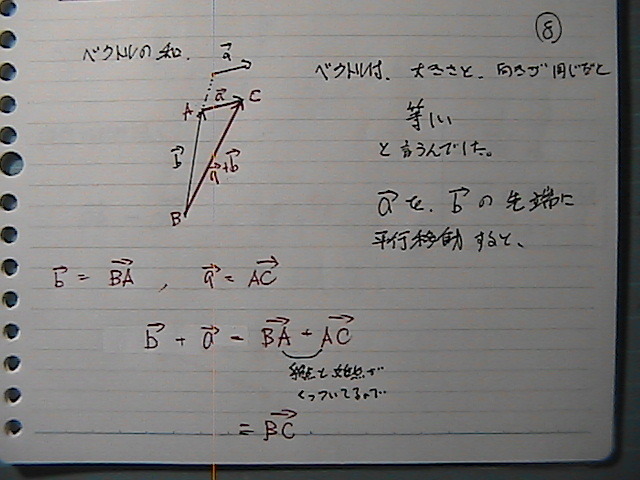 ⑧
ベクトルの和.
a→
A
a→
C
b→
a→+b→
B
ベクトルは、大きさと、向きが同じだと
等しい
と言うんでした。
a→を、b→の先端に
平行移動すると、
b→ = BA→ , a→ = AC→
b→ + a→ = BA→ + AC→
終点と始点が
くっついてるので
= BC→